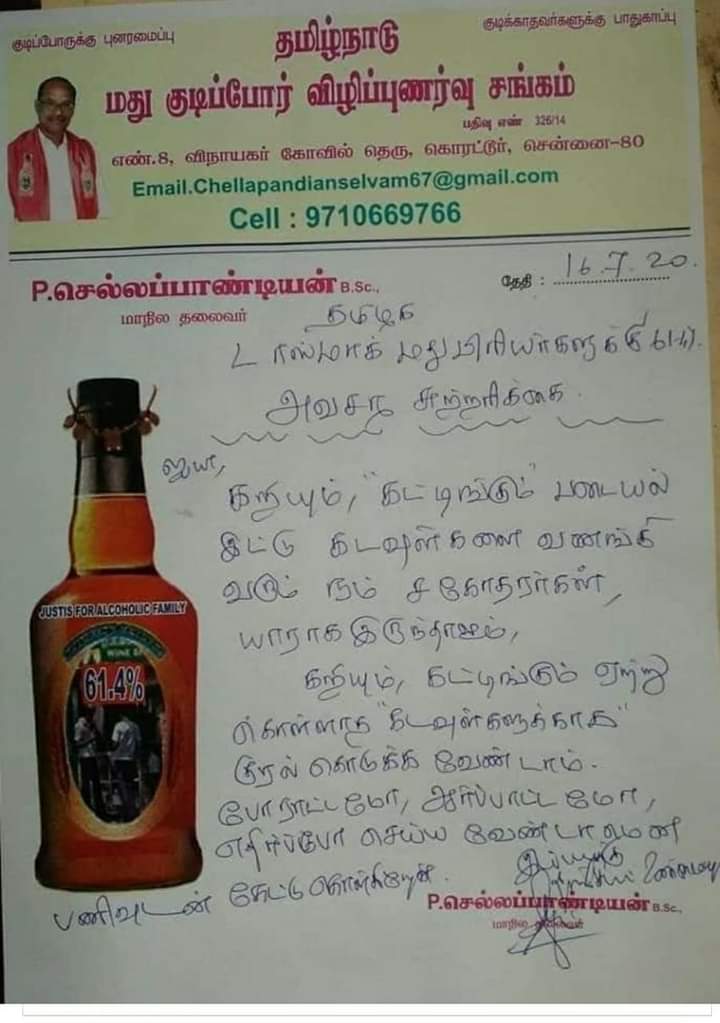 குடிப்போருக்கு புனரமைப்பு
குடிக்காதவர்களுக்கு பாதுகாப்பு
தமிழ்நாடு
மது குடிப்போர் விழிப்புணர்வு சங்கம்
பதிவு எண் 326/14
எண்.8, விநாயகர் கோவில் தெரு, கொரட்டூர், சென்னை-80
Email.Chellapandianselvam67@gmail.com
Cell : 9710669766
P.செல்லப்பாண்டியன் B.Sc.,
மாநில தலைவர்
தேதி : 16.7.20.
தமிழக
டாஸ்மாக் மதுபிரியர்களுக்கு 61.4%.
அவசர சுற்றறிக்கை.
ஐயா,
கறியும், "கட்டிங்கும்" படையல்
இட்டு கடவுள்களை வணங்கி
வரும் நம் சகோதரர்கள்,
யாராக இருந்தாலும்,
கறியும், கட்டிங்கும் ஏற்று
கொள்ளாத "கடவுள்களுக்காக"
குரல் கொடுக்க வேண்டாம்.
போராட்டமோ, ஆர்ப்பாட்டமோ,
எதிர்ப்போ செய்ய வேண்டாமென
பணிவுடன் கேட்டு கொள்கிறேன்.
இப்படிக்கு
P.செல்லப்பாண்டியன் B.Sc.,
மாநில தலைவர்
JUSTIS FOR ALCOHOLIC FAMILY
WINE
61.4%